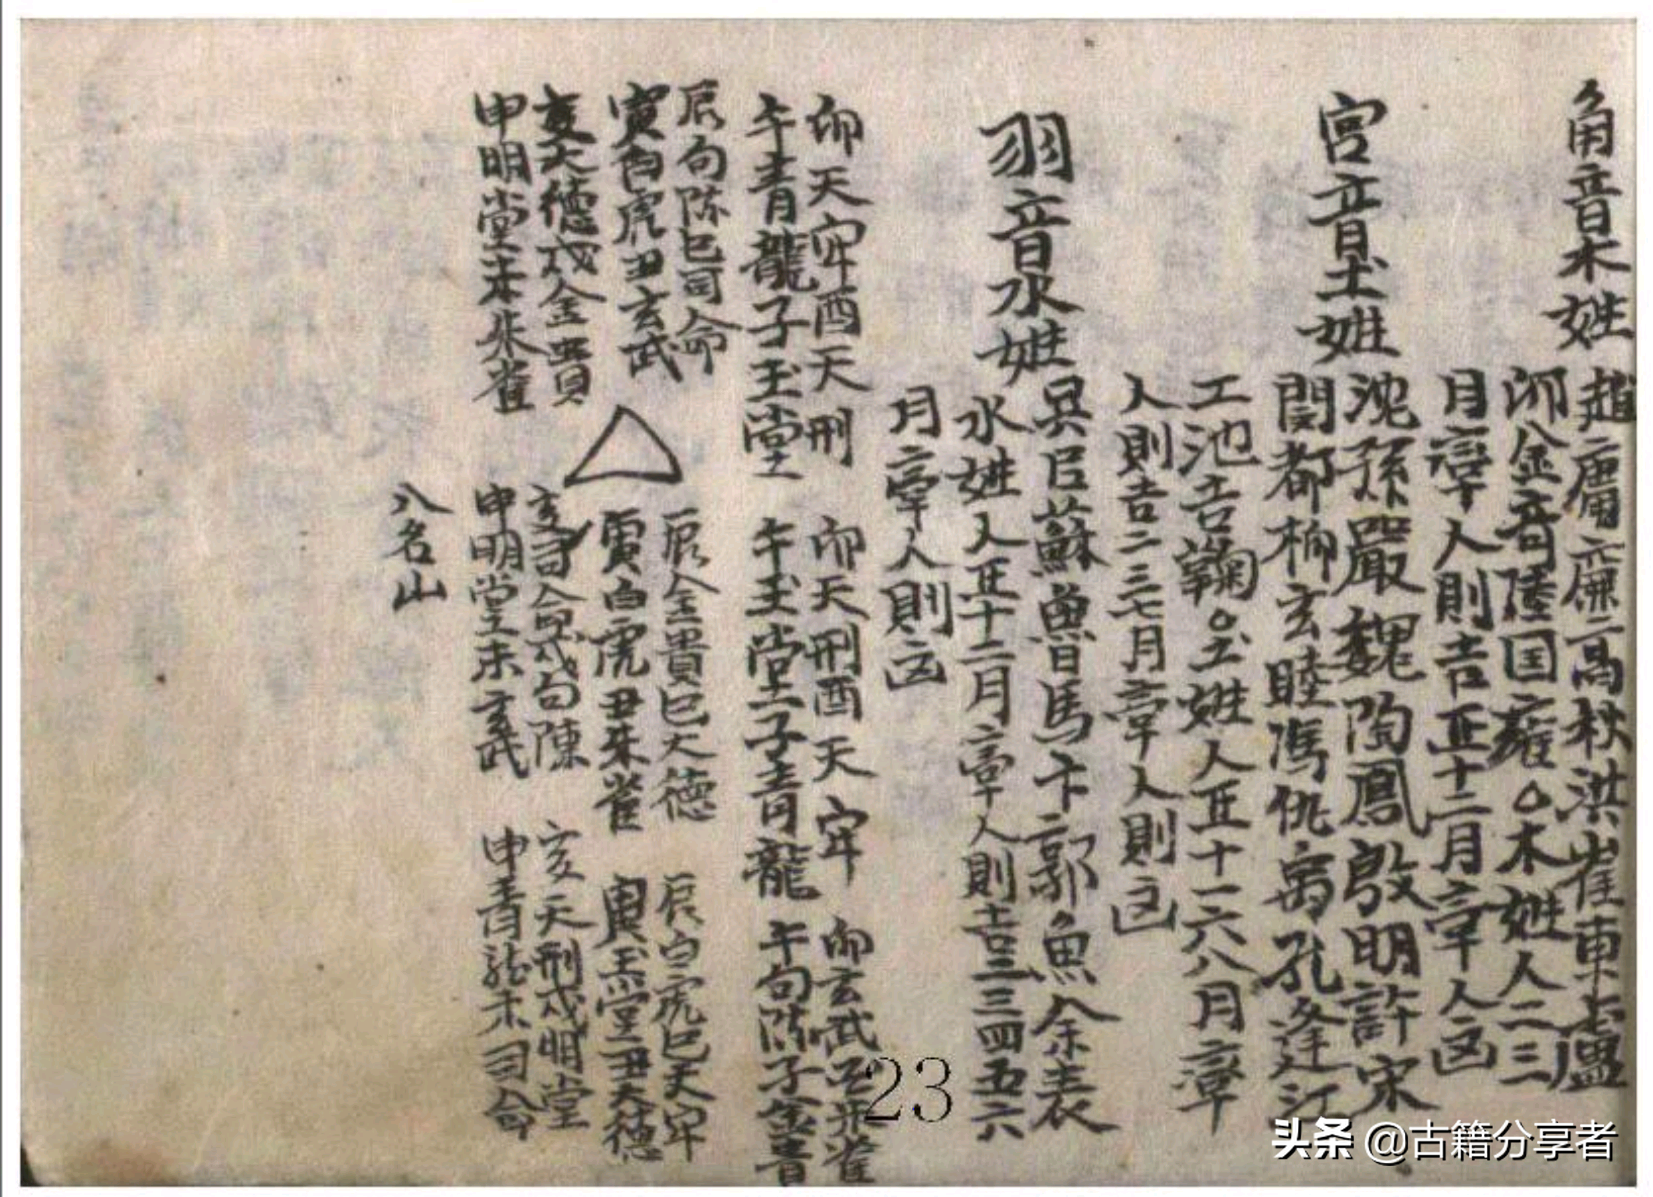 角音木姓
趙廉高秋洪崔東盧
金音陸国雍○木姓人二三
月章人則吉正十二月章人凶
宮音土姓
沈孫嚴魏陶鳳殷明許宋
閔都柳玄睦馮仇禹孔逢江
工池吉鞠○土姓人正十一六八月章
人則吉二三七月章人則凶
羽音水姓
吳呂蘇魯馬卞郭魚余表
水姓人正十二月章人則吉二三四五六
月章人則凶
卯天牢酉天刑
午青龍子玉堂
辰句陈巳司命
寅白虎丑玄武
亥大德戌金貴
申明堂未朱雀
卯天刑酉天牢
午玉堂子青龍
辰金貴巳大德
寅白虎丑朱雀
亥司命戌句陳
申明堂未玄武
卯玄武酉朱雀
午句陈子金貴
辰白虎巳天牢
寅玉堂丑大德
亥天刑戌明堂
申青龍未司命
八名山
23
头条 @古籍分享者